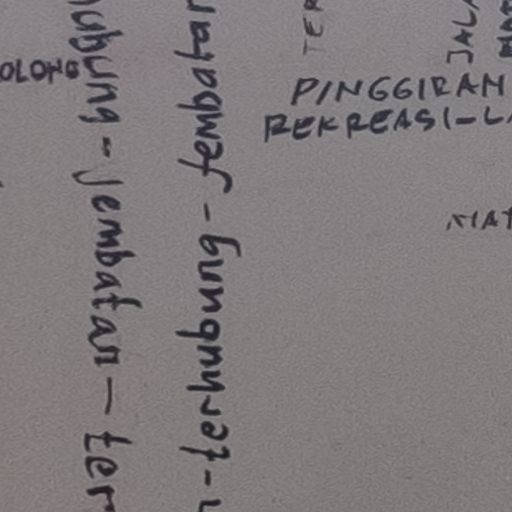 OLONG
hubung - Jembatan - ter
- terhubung - Jembatan
TER
JALA
PINGGIRAN
REKREASI - L